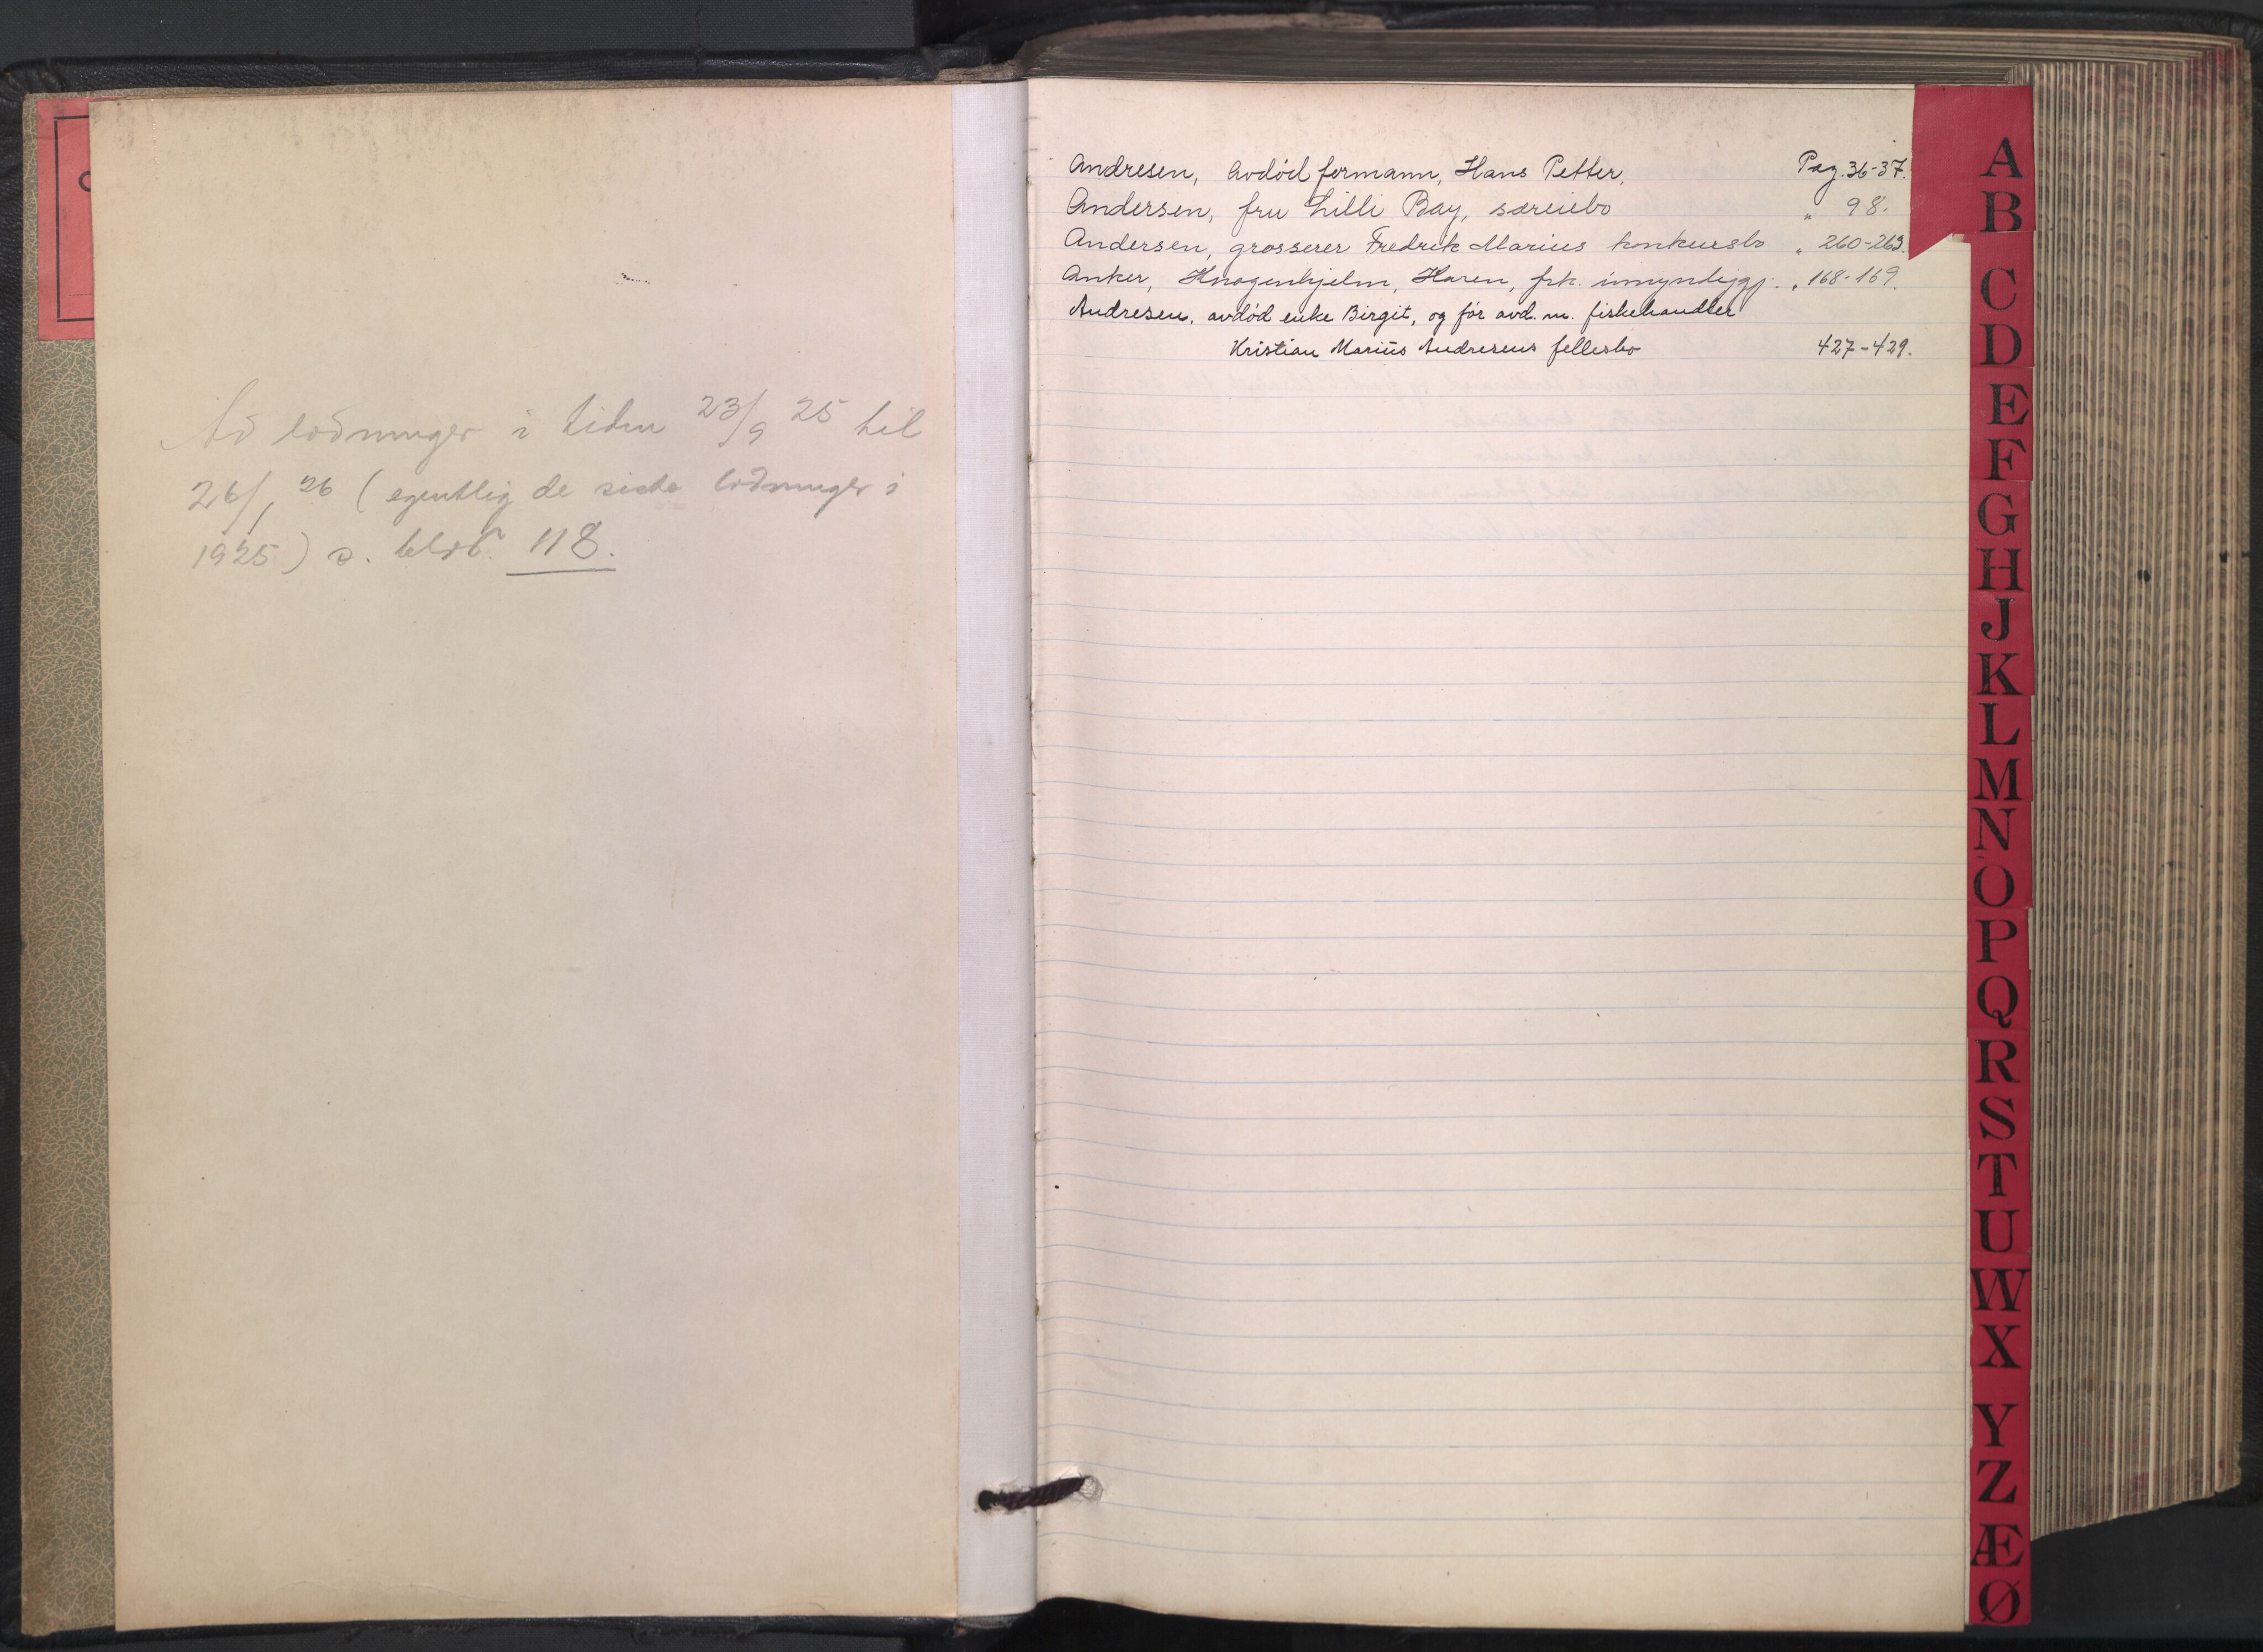 lodninger i tiden 23/9 25 til
26/1 26 (egentlig de siste lodninger i
1925) s. 118.
Andresen, avdød formann, Hans Petter, Pag. 36-37.
Andersen, fru Lilli Bay, særeiebo " 98.
Andersen, grosserer Fredrik Marius konkursbo " 260-263.
Anker, Knagenhjelm, Karen, frk. umyndiggj. " 168-169.
Andresen, avdød enke Birgit, og før avd. m. fiskehandler
Kristian Marius Andresens fellesbo 427-429.
A
B
C
D
E
F
G
H
J
K
L
M
N
O
P
Q
R
S
T
U
W
X
Y
Z
Æ
Ø